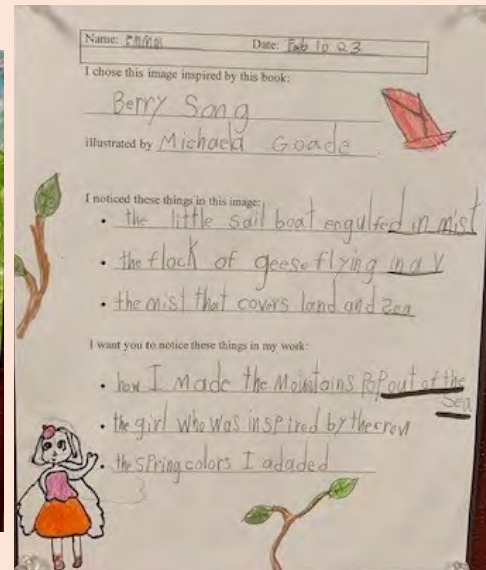 Name: emma Date: Feb 10 23
I chose this image inspired by this book:
Berry Song
illustrated by Michaela Goade
I noticed these things in this image:
• the little sail boat engulfed in mist
• the flock of geese flying in a V
• the mist that covers land and sea
I want you to notice these things in my work:
• how I made the Mountains pop out of the
sea
• the girl who was inspired by the crow
• the spring colors I adaded